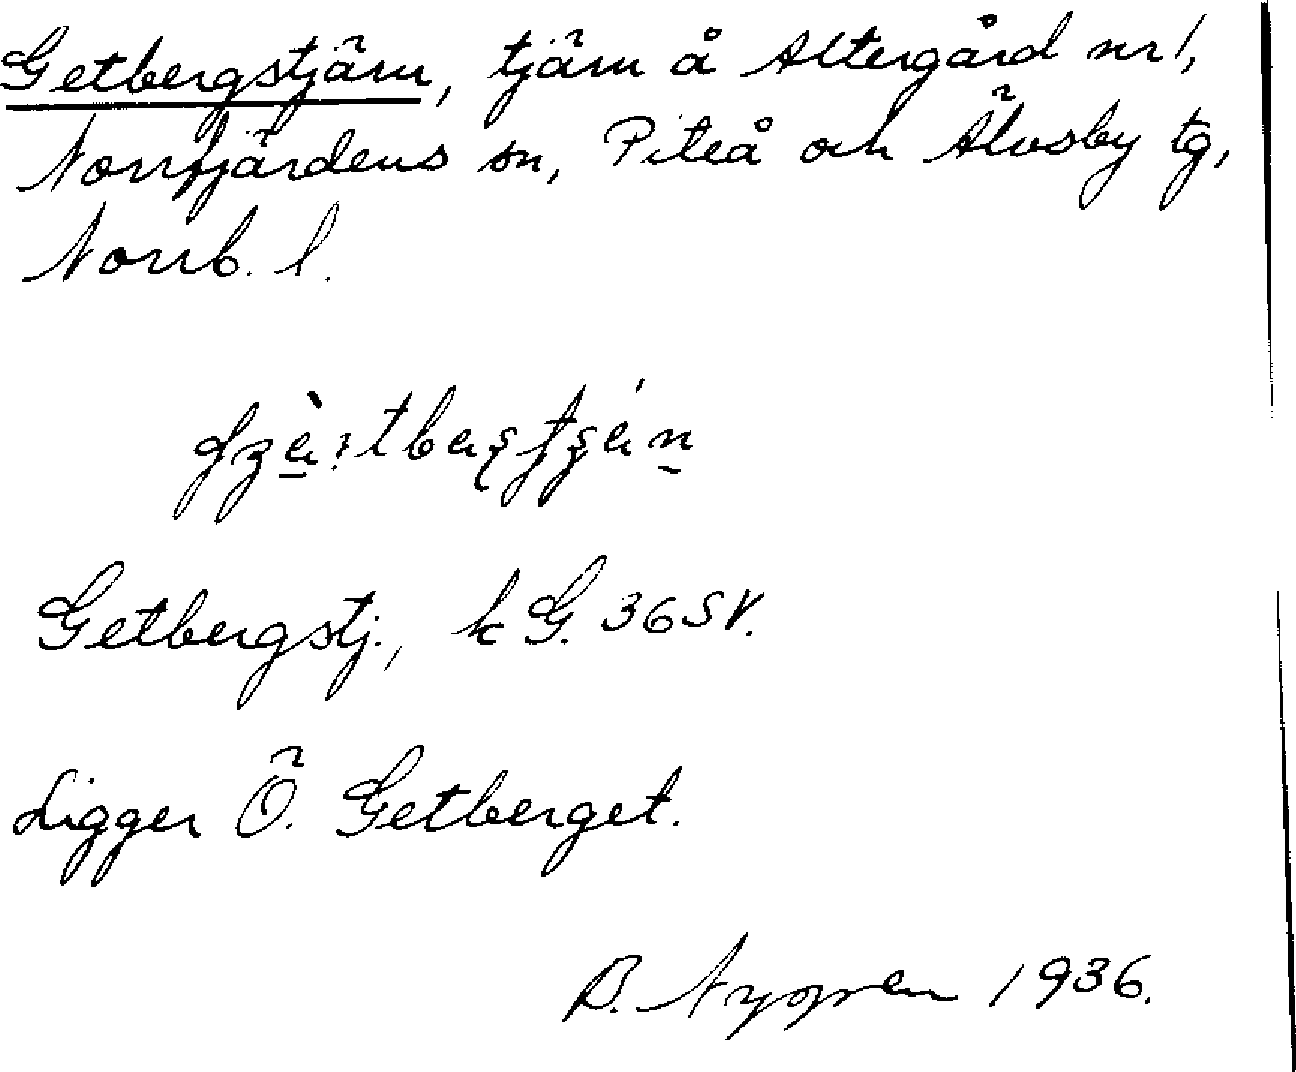 Getbergstjärn, tjärn å Altergård nr 1,
Norrfjärdens sn, Piteå och Älvsby tg,
Norrb. l.
Getbergstj., k G. 36 SV.
Ligger Ö. Getberget.
B. Nygren 1936.